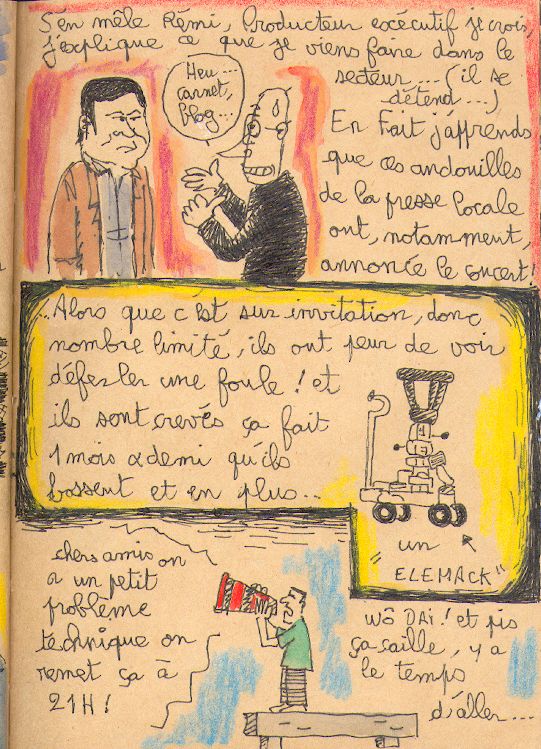 S'en mêle Rémi, Producteur exécutif je crois,
j'explique ce que je viens faire dans le
secteur... (il se
détend...)
Heu...
carnet,
blog...
En Fait j'apprends
que ces andouilles
de la presse locale
ont, notamment,
annoncé le concert!
..Alors que c'est sur invitation, donc
nombre limité, ils ont peur de voir
déferler une foule! et
ils sont crevés ça fait
1 mois & demi qu'ils
bossent et en plus...
"un
ELEMACK"
chers amis on
a un petit
problème
technique on
remet ça à
21H!
Wô DAï! et pis
ça caille, y a
le temps
d'aller...